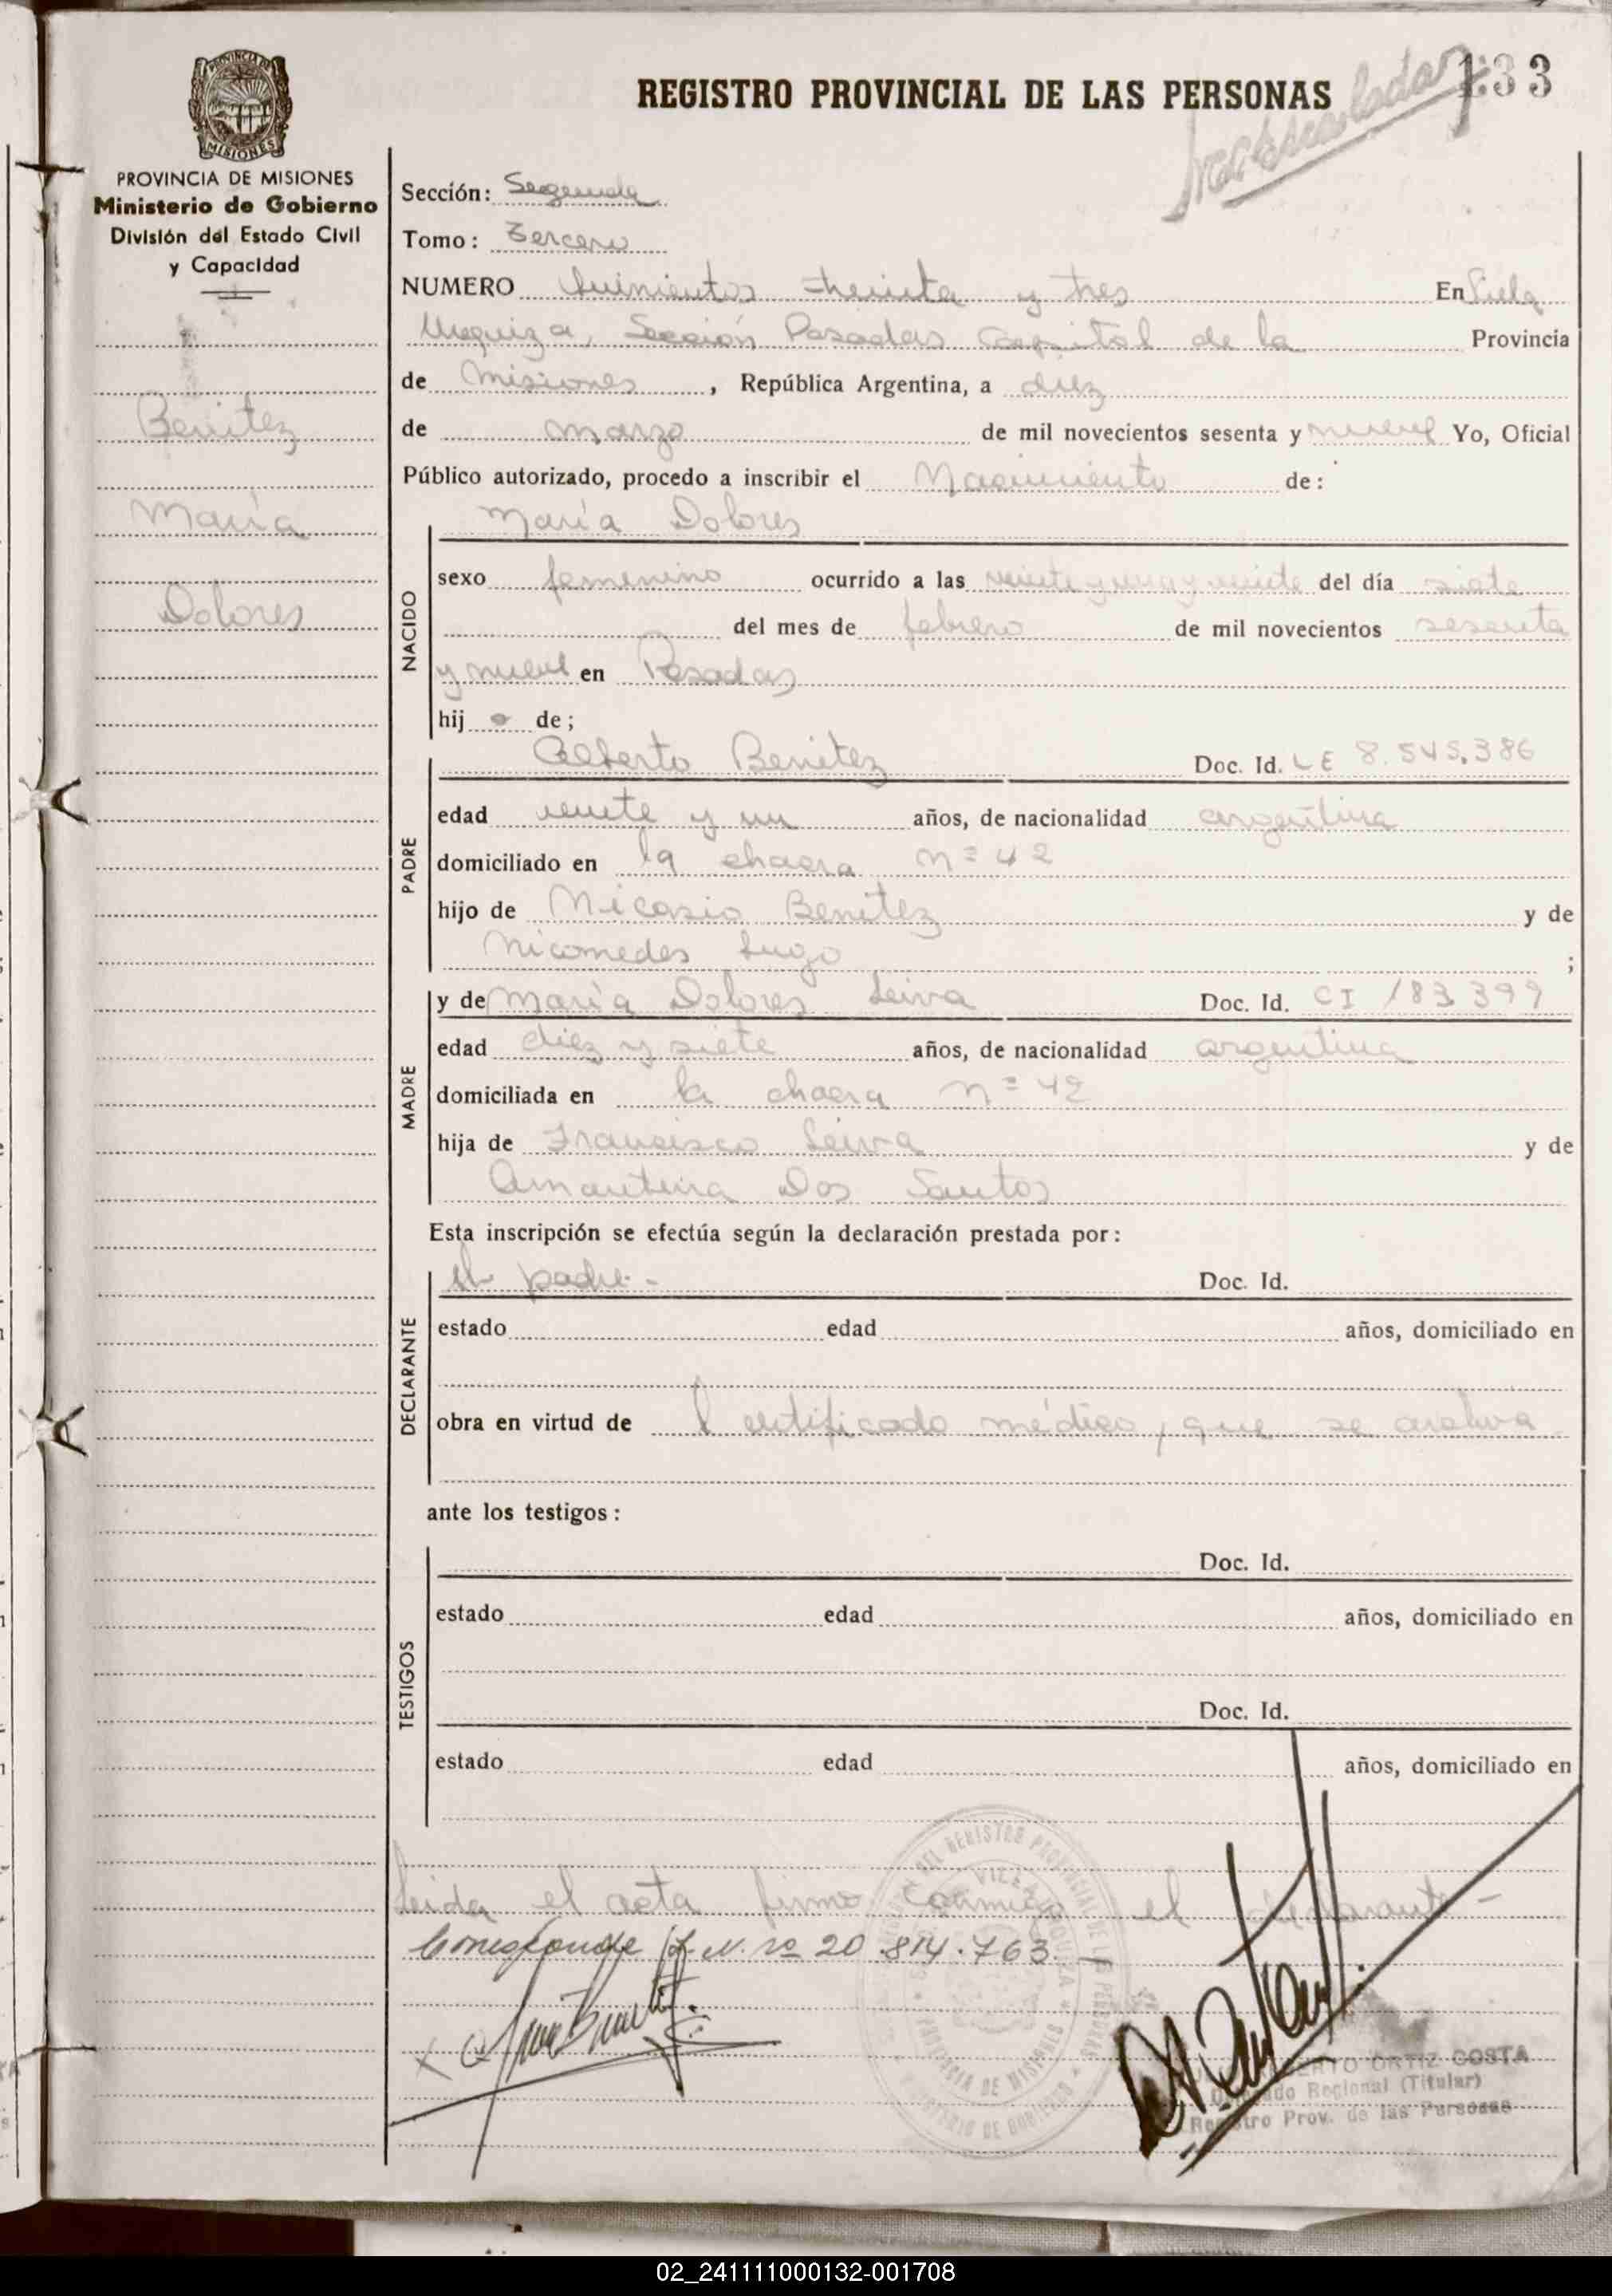 Matriculada
133
REGISTRO PROVINCIAL DE LAS PERSONAS
MISIONES
PROVINCIA DE MISIONES
Ministerio de Gobierno
División del Estado Civil
y Capacidad
Benitez
María
Dolores
Sección: Segunda
Tomo: Tercero
NUMERO Quinientos treinta y tres En Villa
Urquiza, Sección Posadas Capital de la Provincia
de Misiones, República Argentina, a diez
de marzo de mil novecientos sesenta y nueve Yo, Oficial
Público autorizado, procedo a inscribir el Nacimiento de:
NACIDO
María Dolores
sexo femenino ocurrido a las veinte y una y veinte del día siete
del mes de febrero de mil novecientos sesenta
y nueve en Posadas
hij a de;
PADRE
Alberto Benitez Doc. Id. LE 8.545.386
edad veinte y un años, de nacionalidad argentina
domiciliado en la chacra nº 42
hijo de Nicasio Benitez y de
Nicomedes Lugo ;
MADRE
y de María Dolores Leiva Doc. Id. CI 183.399
edad diez y siete años, de nacionalidad argentina
domiciliada en la chacra nº 42
hija de Francisco Leiva y de
Amantina Dos Santos
Esta inscripción se efectúa según la declaración prestada por:
DECLARANTE
el padre.- Doc. Id.
estado edad años, domiciliado en
obra en virtud de l certificado médico, que se archiva
ante los testigos:
TESTIGOS
Doc. Id.
estado edad años, domiciliado en
Doc. Id.
estado edad años, domiciliado en
Leida el acta firma conmigo el declarante -
Corresponde L.N. nº 20.814.763
ORTIZ COSTA
Regional (Titular)
Registro Prov. de las Personas
02_241111000132-001708